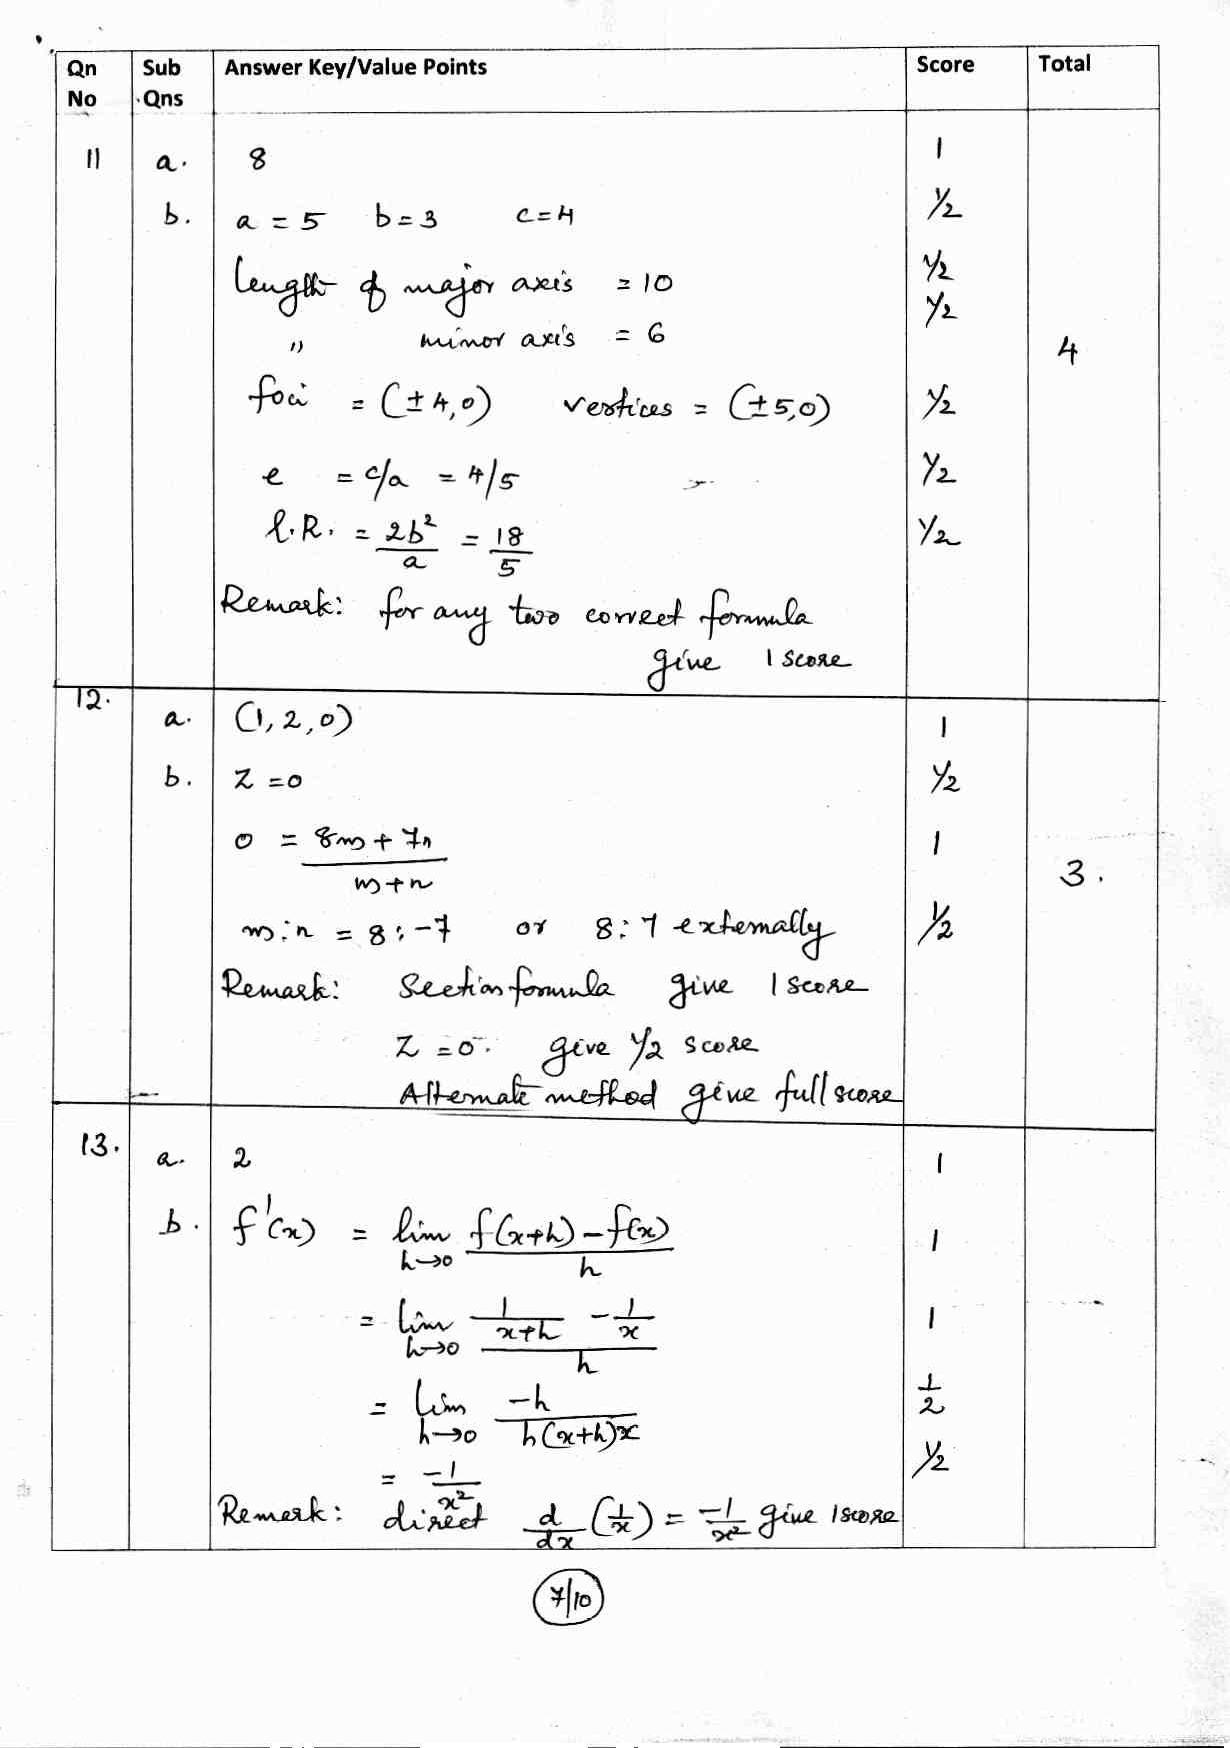 Qn No Sub Qns Answer Key/Value Points Score Total
11 a. 8 1
b. a = 5 b = 3 c = 4 1/2
length of major axis = 10 1/2
" minor axis = 6 1/2
4
foci = (± 4, 0) vertices = (± 5, 0) 1/2
e = c/a = 4/5 1/2
l.R. = 2b²/a = 18/5 1/2
Remark: for any two correct formula
give 1 score
12. a. (1, 2, 0) 1
b. Z = 0 1/2
0 = (8m + 7n)/(m+n) 1
3.
m:n = 8:-7 or 8:7 externally 1/2
Remark: Section formula give 1 score
Z = 0. give 1/2 score
Alternate method give full score
13. a. 2 1
b. f'(x) = lim h→0 (f(x+h) - f(x))/h 1
= lim h→0 (1/(x+h) - 1/x)/h 1
= lim h→0 -h/(h(x+h)x) 1/2
= -1/x² 1/2
Remark: direct d/dx (1/x) = -1/x² give 1 score
7/10